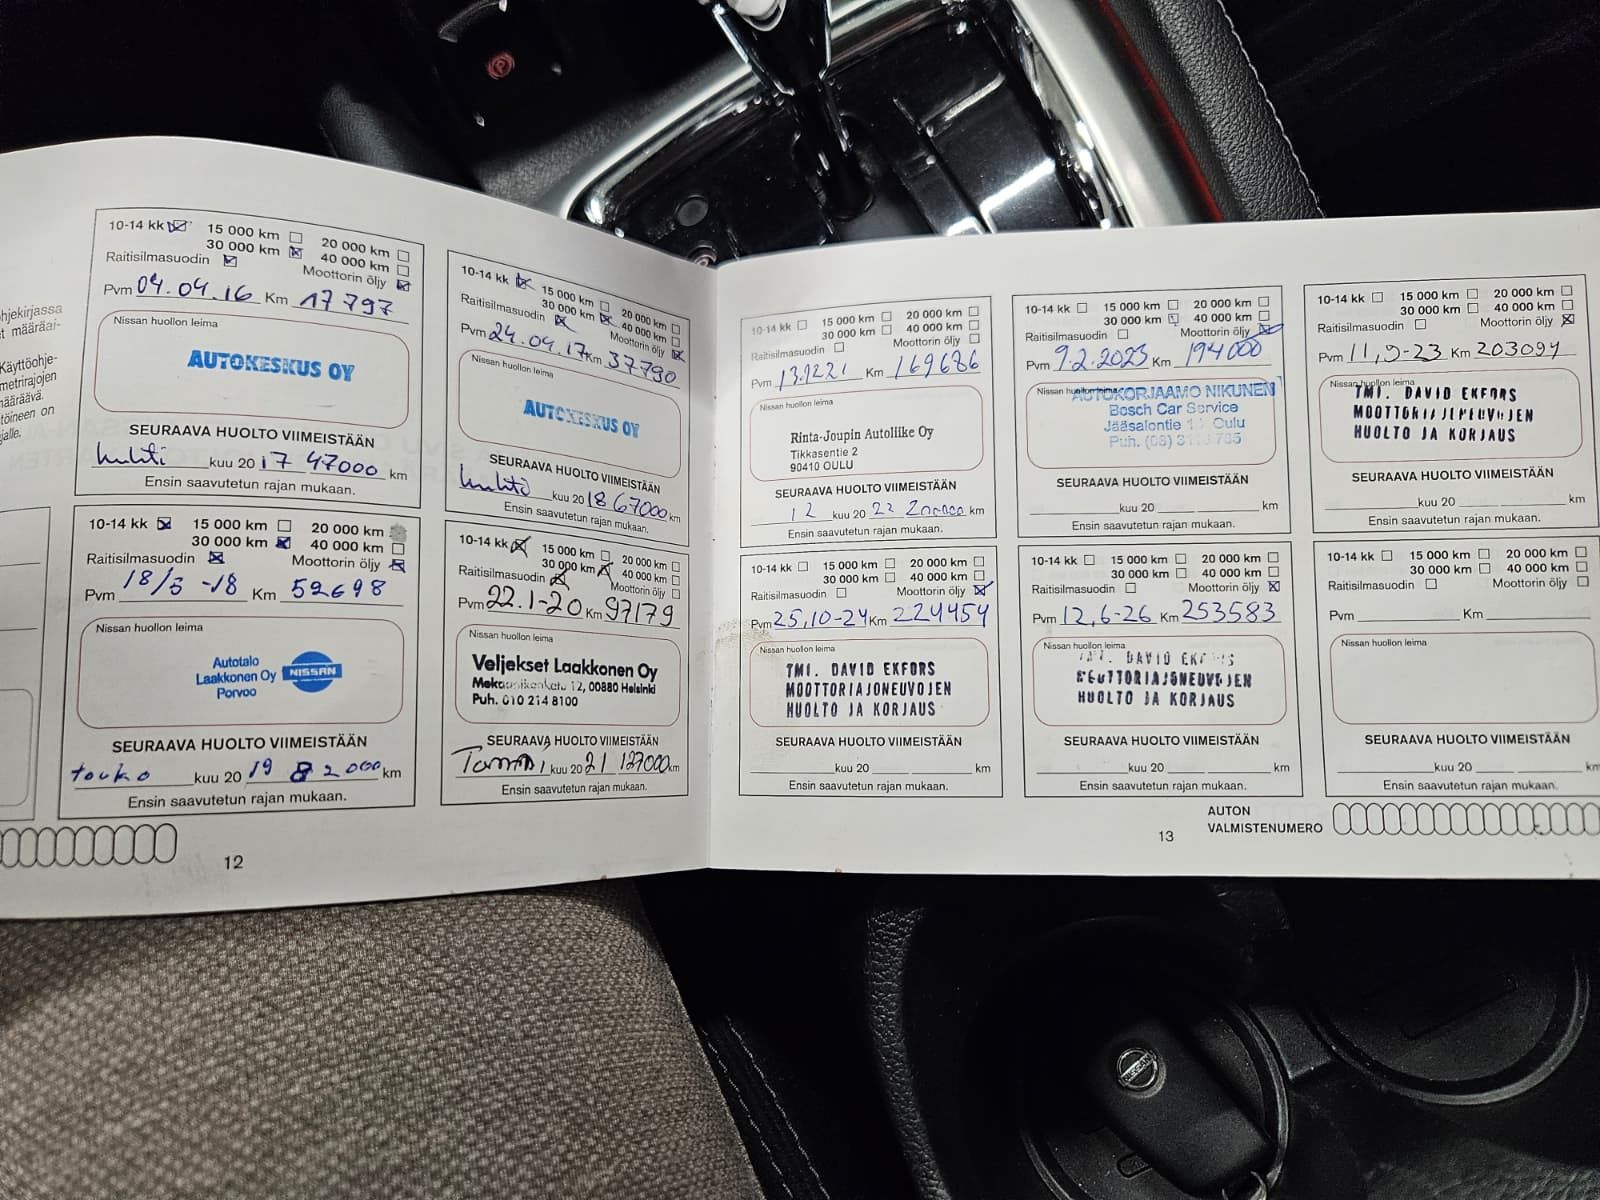 hjekirjassa
t määräai-
Käyttöohje-
metrirajojen
määräävä.
töineen on
jalle.
10-14 kk 15 000 km 20 000 km
30 000 km 40 000 km
Raitisilmasuodin Moottorin öljy
Pvm 04.04.16 Km 17 797
Nissan huollon leima
AUTOKESKUS OY
SEURAAVA HUOLTO VIIMEISTÄÄN
huhti kuu 20 17 47000 km
Ensin saavutetun rajan mukaan.
10-14 kk 15 000 km 20 000 km
30 000 km 40 000 km
Raitisilmasuodin Moottorin öljy
Pvm 24.04.17 Km 37790
Nissan huollon leima
AUTOKESKUS OY
SEURAAVA HUOLTO VIIMEISTÄÄN
huhti kuu 20 18 67000 km
Ensin saavutetun rajan mukaan.
10-14 kk 15 000 km 20 000 km
30 000 km 40 000 km
Raitisilmasuodin Moottorin öljy
Pvm 18/5 -18 Km 52698
Nissan huollon leima
Autotalo
Laakkonen Oy NISSAN
Porvoo
SEURAAVA HUOLTO VIIMEISTÄÄN
touko kuu 20 19 82000 km
Ensin saavutetun rajan mukaan.
10-14 kk 15 000 km 20 000 km
30 000 km 40 000 km
Raitisilmasuodin Moottorin öljy
Pvm 22.1-20 Km 97179
Nissan huollon leima
Veljekset Laakkonen Oy
12, 00880 Helsinki
Puh. 010 214 8100
SEURAAVA HUOLTO VIIMEISTÄÄN
Tammi kuu 20 21 127000 km
Ensin saavutetun rajan mukaan.
12
10-14 kk 15 000 km 20 000 km
30 000 km 40 000 km
Raitisilmasuodin Moottorin öljy
Pvm 13.12 21 Km 169686
Nissan huollon leima
Rinta-Joupin Autoliike Oy
Tikkasentie 2
90410 OULU
SEURAAVA HUOLTO VIIMEISTÄÄN
12 kuu 20 22 km
Ensin saavutetun rajan mukaan.
10-14 kk 15 000 km 20 000 km
30 000 km 40 000 km
Raitisilmasuodin Moottorin öljy
Pvm 9.2.2023 Km 194000
Nissan huollon leima
AUTOKORJAAMO NIKUNEN
Bosch Car Service
Jääsalontie Oulu
Puh. (08)
SEURAAVA HUOLTO VIIMEISTÄÄN
kuu 20 km
Ensin saavutetun rajan mukaan.
10-14 kk 15 000 km 20 000 km
30 000 km 40 000 km
Raitisilmasuodin Moottorin öljy
Pvm 11,9-23 Km 203094
Nissan huollon leima
TMI. DAVID EKFORS
MOOTTORIAJONEUVOJEN
HUOLTO JA KORJAUS
SEURAAVA HUOLTO VIIMEISTÄÄN
kuu 20 km
Ensin saavutetun rajan mukaan.
10-14 kk 15 000 km 20 000 km
30 000 km 40 000 km
Raitisilmasuodin Moottorin öljy
Pvm 25,10-24 Km 224454
Nissan huollon leima
TMI. DAVID EKFORS
MOOTTORIAJONEUVOJEN
HUOLTO JA KORJAUS
SEURAAVA HUOLTO VIIMEISTÄÄN
kuu 20 km
Ensin saavutetun rajan mukaan.
10-14 kk 15 000 km 20 000 km
30 000 km 40 000 km
Raitisilmasuodin Moottorin öljy
Pvm 12,6-26 Km 253583
Nissan huollon leima
TMI. DAVID EKFORS
MOOTTORIAJONEUVOJEN
HUOLTO JA KORJAUS
SEURAAVA HUOLTO VIIMEISTÄÄN
kuu 20 km
Ensin saavutetun rajan mukaan.
10-14 kk 15 000 km 20 000 km
30 000 km 40 000 km
Raitisilmasuodin Moottorin öljy
Pvm Km
Nissan huollon leima
SEURAAVA HUOLTO VIIMEISTÄÄN
kuu 20 km
Ensin saavutetun rajan mukaan.
AUTON
VALMISTENUMERO
13